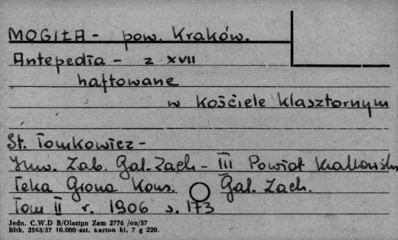 MOGIŁA - pow. Kraków.
Antepedia - z XVII
haftowane
w kościele klasztornym
St. Tomkowicz -
Inw. Zab. Gal. Zach - III Powiat Krakowski
Teka Grona Kons. Gal. Zach.
Tom II r. 1906 s. 173
Jedn. C.W.D B/Olsztyn Zam 2776 /on/57
Błtk. 2563/57 10.000 szt. karton kl. 7 g 220.